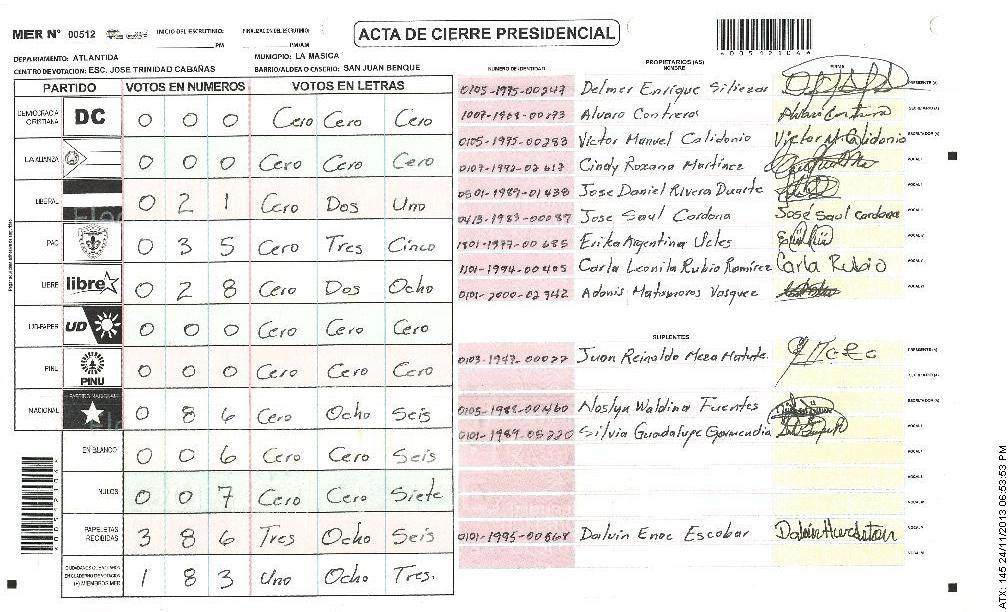 MER N° 00512 INICIO DEL ESCRUTINIO: PM FINALIZACION DEL ESCRUTINIO: PM/AM
ACTA DE CIERRE PRESIDENCIAL
DEPARTAMENTO: ATLANTIDA MUNICIPIO: LA MASICA
CENTRO DE VOTACION: ESC. JOSE TRINIDAD CABAÑAS BARRIO/ALDEA O CASERIO: SAN JUAN BENQUE
PARTIDO VOTOS EN NUMEROS VOTOS EN LETRAS
DEMOCRACIA CRISTIANA DC 0 0 0 Cero Cero Cero
LA ALIANZA 0 0 0 Cero Cero Cero
LIBERAL 0 2 1 Cero Dos Uno
PAC 0 3 5 Cero Tres Cinco
LIBRE libre 0 2 8 Cero Dos Ocho
UD-FAPER UD 0 0 0 Cero Cero Cero
PINU PINU 0 0 0 Cero Cero Cero
NACIONAL 0 8 6 Cero Ocho Seis
EN BLANCO 0 0 6 Cero Cero Seis
NULOS 0 0 7 Cero Cero Siete
PAPELETAS RECIBIDAS 3 8 6 Tres Ocho Seis
1 8 3 Uno Ocho Tres.
NUMERO DE IDENTIDAD PROPIETARIOS (AS) NOMBRE FIRMA
0105-1975-00247 Delmer Enrique Siliezar PRESIDENTE (A)
Alvaro Contreros Alvaro Contreros SECRETARIO (A)
0105-1975-00283 Victor Manuel Calidonio Victor M. Calidonio ESCRUTADOR (A)
0107-1992-02613 Cindy Roxana Martinez VOCAL I
0501-1989-01438 Jose Daniel Rivera Duarte
0413-1983-00087 Jose Saul Cardona José Saul Cardona
1801-1977-00685 Erika Argentina Ucles
1101-1994-00405 Carla Leonila Rubio Ramírez Carla Rubio
0101-2000-02942 Adonis Matamoros Vasquez
SUPLENTES
0103-1947-00022 Juan Reinaldo Meza Matute. PRESIDENTE (A)
SECRETARIO (A)
0105-1988-00460 Noslyn Waldina Fuentes ESCRUTADOR (A)
0101-1989-03220 Silvia Guadalupe Garmendia VOCAL I
0101-1995-00868 Dalvin Enoc Escobar
ATX: 145 24/11/2013 06:53:53 PM